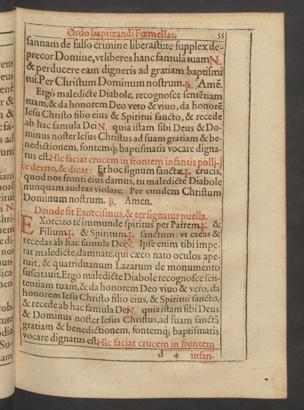 Ordo baptizandi Fœmellas. 55
sannam de falso crimine liberasti: te supplex de-
precor Domine, vt liberes hanc famulā tuam N.
& perducere eam digneris ad gratiam baptismi
tui. Per Christum Dominum nostrum. ℟. Amē.
Ergo maledicte Diabole, recognosce sentētiam
tuam, & da honorem Deo vero & viuo, da honorē
Iesu Christo filio eius & Spiritui sancto, & recede
ab hac famula Dei N. quia istam sibi Deus & Do-
minus noster Iesus Christus ad suam gratiam & be-
nedictionem, fontemq; baptismatis vocare digna-
tus est. Hic faciat crucem in frontem infantis polli-
ce dextro, & dicat: Et hoc signum sanctæ ✠ crucis,
quod nos fronti eius damus, tu maledicte Diabole
nunquam audeas violare. Per eundem Christum
Dominum nostrum. ℟. Amen.
Deinde fit Exorcismus, & ter signatur puella.
Exorcizo te immunde spiritus per Patrem ✠ &
Filium ✠ & Spiritum ✠ sanctum: vt exeas &
recedas ab hac famula Dei N. Ipse enim tibi impe-
rat maledicte, damnate, qui cæco nato oculos ape-
ruit, & quatriduanum Lazarum de monumento
suscitauit. Ergo maledicte Diabole recognosce sen-
tentiam tuam, & da honorem Deo viuo & vero, da
honorem Iesu Christo filio eius, & Spiritui sancto,
& recede ab hac famula Dei N. quia istam sibi Deus
& Dominus noster Iesus Christus, ad suam sanctā
gratiam & benedictionem, fontemq; baptismatis
vocare dignatus est. Hic faciat crucem in frontem
d 4 infan-